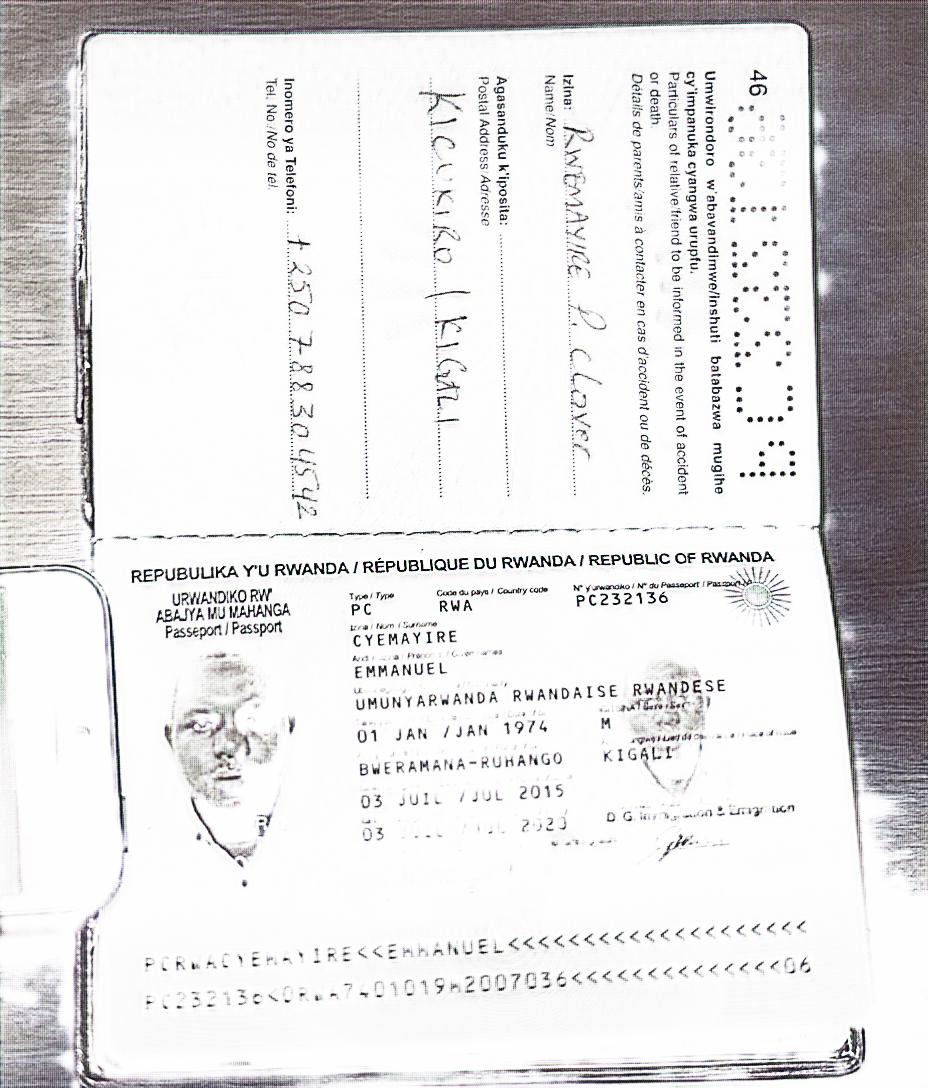 46
Umwirondoro w'abavandimwe/inshuti batabazwa mugihe
cy'impanuka cyangwa urupfu.
Particulars of relative/friend to be informed in the event of accident
or death.
Détails de parents/amis à contacter en cas d'accident ou de décès.
Izina: RWEMAYIRE P. Claver
Name/Nom
Agasanduku k'iposita:
Postal Address Adresse
KICUKIRO / KIGALI
Inomero ya Telefoni: +250 788304542
Tel. No./No de tél.
REPUBULIKA Y'U RWANDA / RÉPUBLIQUE DU RWANDA / REPUBLIC OF RWANDA
URWANDIKO RW'
ABAJYA MU MAHANGA
Passeport / Passport
Type / Type Code du pays / Country code N° y'urwandiko / N° du Passeport / Passport N°
PC RWA PC232136
Izina / Nom / Surname
CYEMAYIRE
EMMANUEL
UMUNYARWANDA RWANDAISE RWANDESE
01 JAN /JAN 1974 M
BWERAMANA-RUHANGO KIGALI
03 JUIL /JUL 2015
03 2020
D.G. Immigration & Emigration
PCRWACYEMAYIRE<<EMMANUEL<<<<<<<<<<<<<<<<<<<<
PC232136<0RWA7401019M2007036<<<<<<<<<<<<<<06